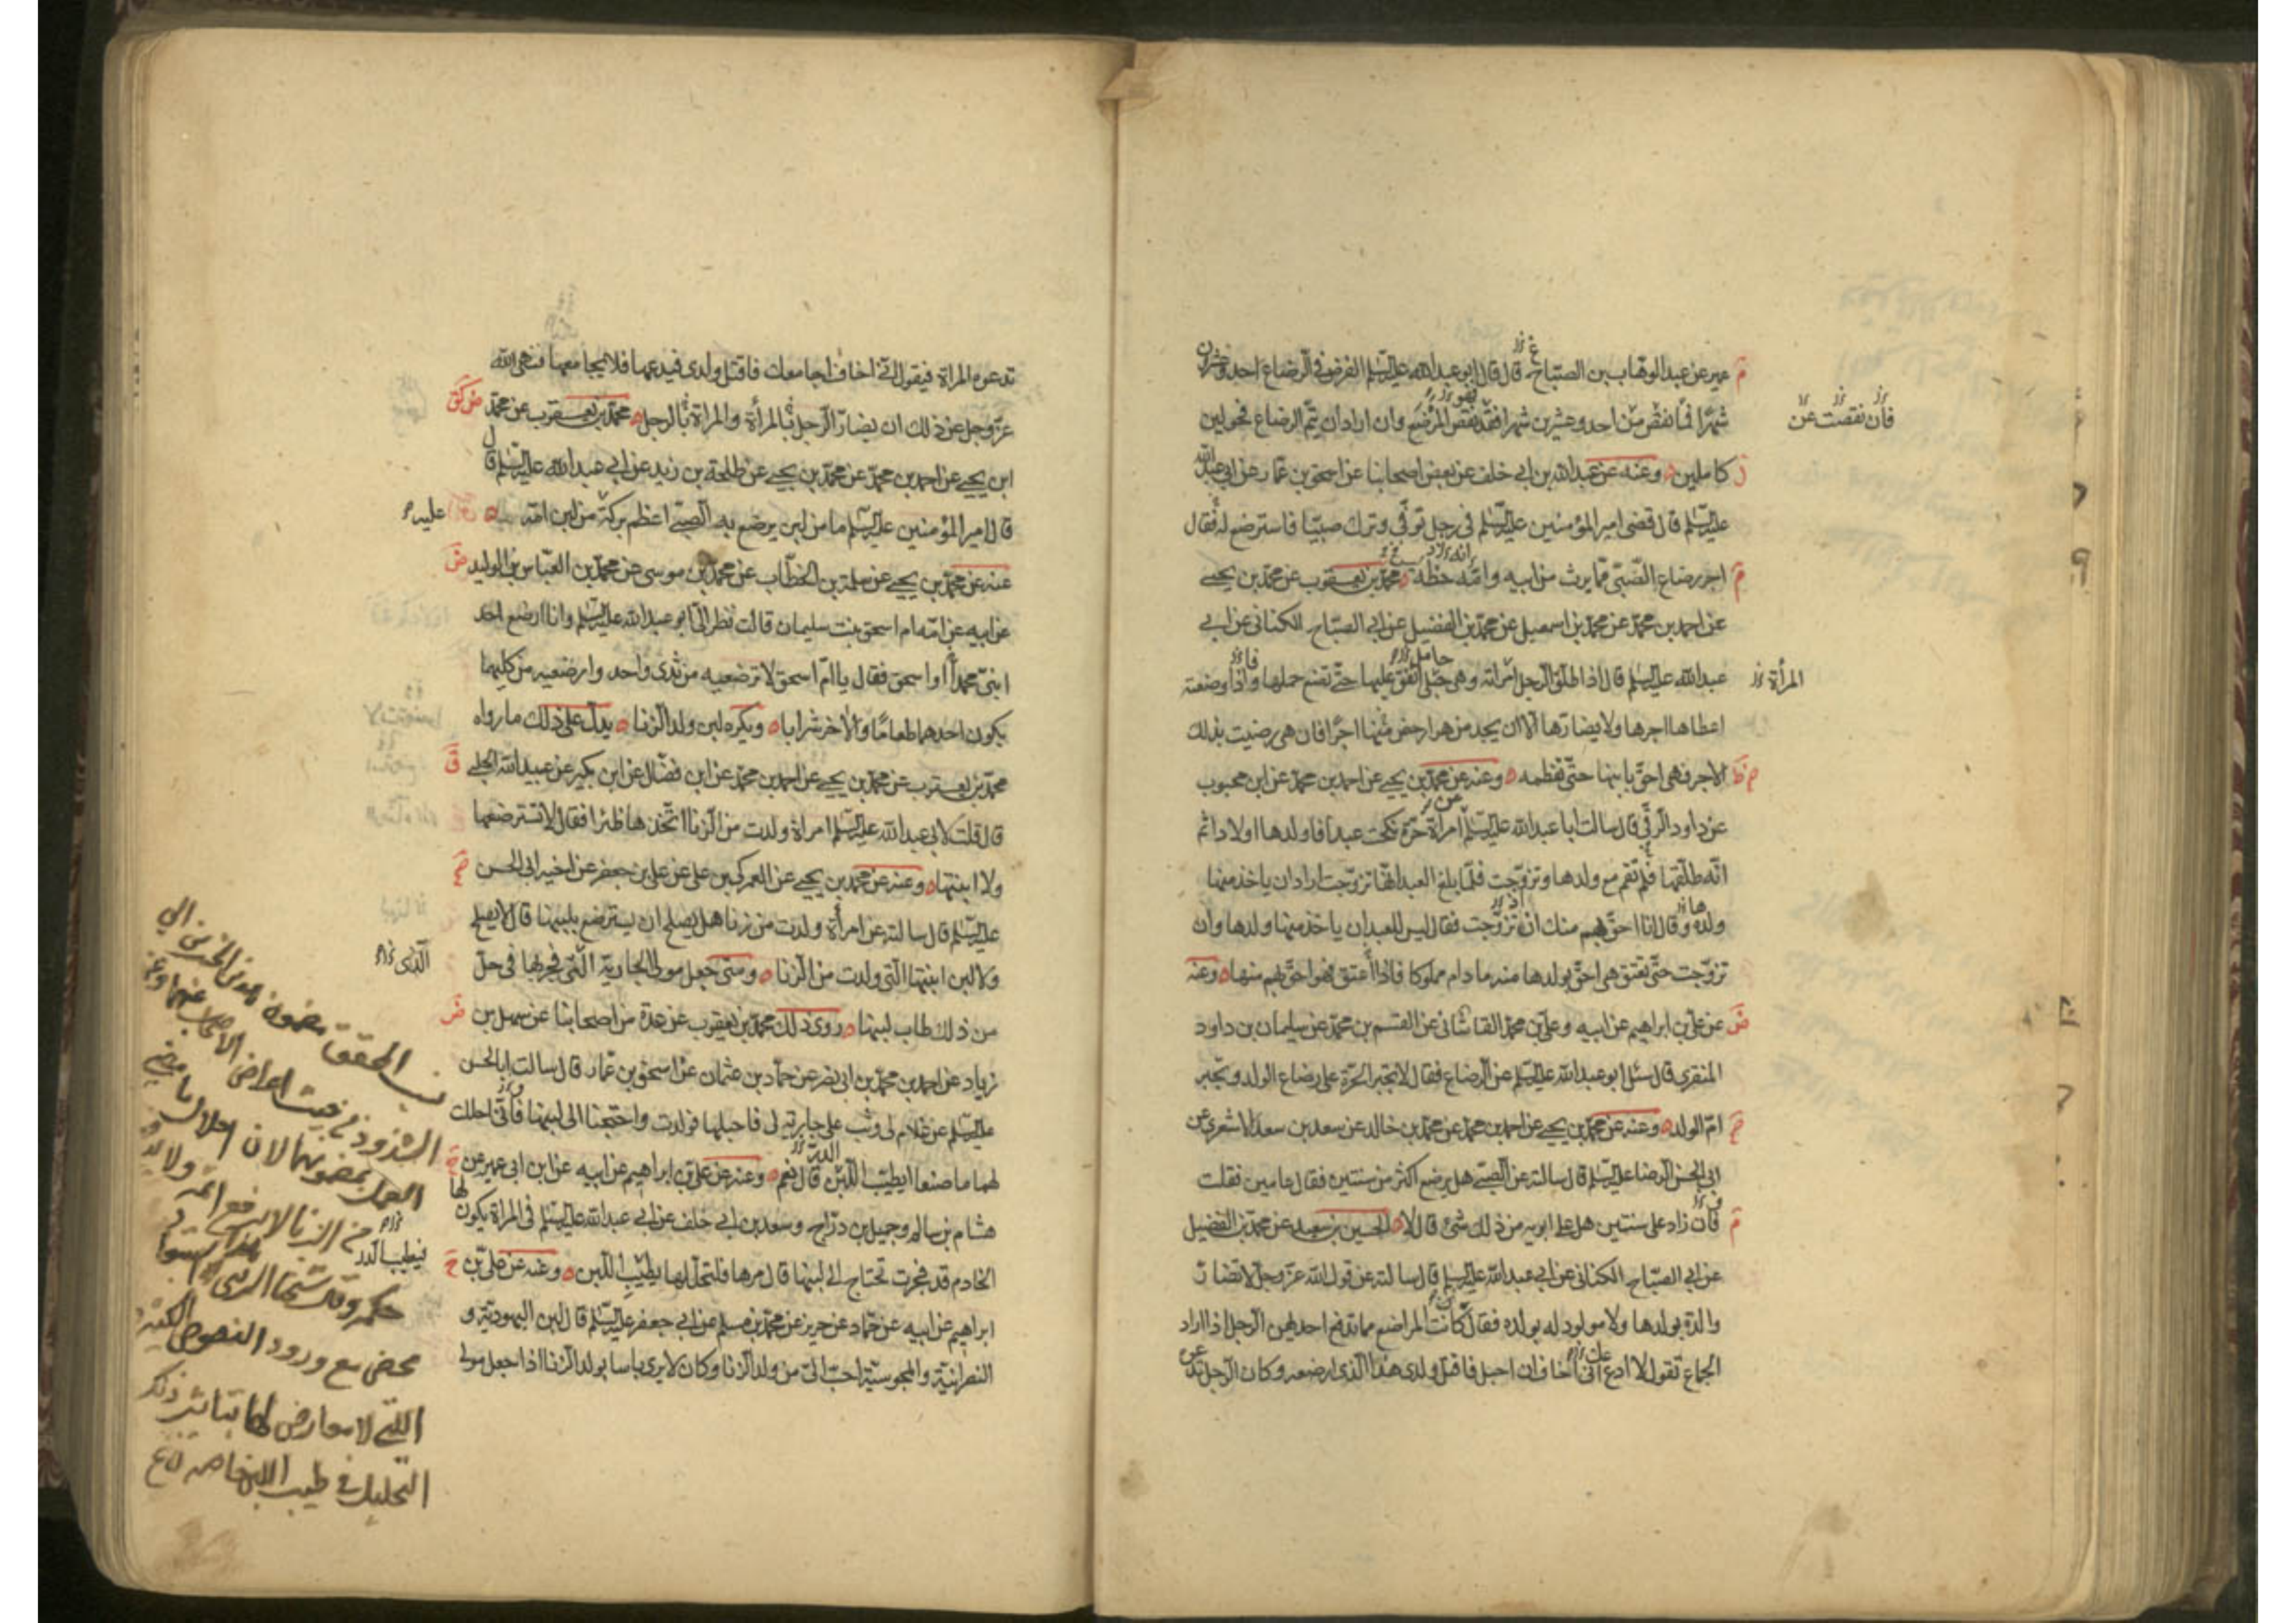 عمير عن عبد الوهاب بن الصباح قال قال ابو عبد الله عليه السلام الفرض في الرضاع احد وعشرون
شهرا فما نقص من احد وعشرين شهرا فقد نقص المرضع وان اراد ان يتم الرضاع فحولين
كاملين وعنه عن عبد الله بن ابي خلف عن بعض اصحابنا عن اسحق بن عمار عن ابي عبد الله
عليه السلام قال قضى امير المؤمنين عليه السلام في رجل توفي وترك صبيا فاسترضع له فقال
اجر رضاع الصبي مما يرث من ابيه وامه حظه محمد بن يعقوب عن محمد بن يحيى
عن احمد بن محمد عن محمد بن اسمعيل عن محمد بن الفضيل عن ابي الصباح الكناني عن ابي
عبد الله عليه السلام قال اذا طلق الرجل امراته وهي حبلى انفق عليها حتى تضع حملها واذا وضعته
اعطاها اجرها ولا يضارها الا ان يجد من هو ارخص منها اجرا فان هي رضيت بذلك
الاجر فهي احق بابنها حتى تفطمه وعنه عن محمد بن يحيى عن احمد بن محمد عن ابن محبوب
عن داود الرقي قال سالت ابا عبد الله عليه السلام امراة حرة نكحت عبدا فاولدها اولادا ثم
انه طلقها فلم تقم مع ولدها وتزوجت فلما بلغ العبد انها تزوجت اراد ان ياخذ منها
ولده وقال انا احق بهم منك ان تزوجت فقال ليس للعبد ان ياخذ منها ولدها وان
تزوجت حتى يعتق هي احق بولدها منه ما دام مملوكا فاذا اعتق فهو احق بهم منها وعنه
عن علي بن ابراهيم عن ابيه وعلي بن محمد القاشاني عن القسم بن محمد عن سليمان بن داود
المنقري قال سئل ابو عبد الله عليه السلام عن الرضاع فقال لا تجبر الحرة على رضاع الولد وتجبر
ام الولد وعنه عن محمد بن يحيى عن احمد بن محمد عن محمد بن خالد عن سعد بن سعد الاشعري عن
ابي الحسن الرضا عليه السلام قال سالته عن الصبي هل يرضع اكثر من سنتين فقال عامين فقلت
فان زاد على سنتين هل على ابويه من ذلك شيء قال لا الحسين بن سعيد عن محمد بن الفضيل
عن ابي الصباح الكناني عن ابي عبد الله عليه السلام قال سالته عن قول الله عز وجل لا تضار
والدة بولدها ولا مولود له بولده فقال كانت المراضع مما تدفع احديهن الرجل اذا اراد
الجماع تقول لا ادعك اني اخاف ان احبل فاقتل ولدى هذا الذى ارضعه وكان الرجل
فان نقصت عن
المرأة
تدعوه المراة فيقول اني اخاف ان اجامعك فاقتل ولدى فيدعها فلا يجامعها فنهى الله
عز وجل عن ذلك ان يضار الرجل بالمرأة والمراة بالرجل محمد بن يعقوب عن محمد
ابن يحيى عن احمد بن محمد عن محمد بن يحيى عن طلحة بن زيد عن ابي عبد الله عليه السلام قال
قال امير المؤمنين عليه السلام ما من لبن يرضع به الصبي اعظم بركة من لبن امه
عنه عن محمد بن يحيى عن سلمة بن الخطاب عن محمد بن موسى عن محمد بن العباس بن الوليد
عن ابيه عن امه ام اسحق بنت سليمان قالت نظر الى ابو عبد الله عليه السلام وانا ارضع احد
ابني محمدا او اسحق فقال يا ام اسحق لا ترضعيه من ثدى واحد وارضعيه من كليهما
يكون احدهما طعاما والاخر شرابا ويكره لبن ولد الزنا يدل على ذلك ما رواه
محمد بن يعقوب عن محمد بن يحيى عن احمد بن محمد عن ابن فضال عن ابن بكير عن عبيد الله الحلبي
قال قلت لابي عبد الله عليه السلام امراة ولدت من الزنا اتخذها ظئرا فقال لا تسترضعها
ولا ابنتها وعنه عن محمد بن يحيى عن العمركي بن علي عن علي بن جعفر عن اخيه ابي الحسن
عليه السلام قال سالته عن امرأة ولدت من زنا هل يصلح ان يسترضع بلبنها قال لا يصلح
ولا لبن ابنتها التي ولدت من الزنا ومتى جعل مولى الجارية التي فجر بها في حل
من ذلك طاب لبنها روى ذلك محمد بن يعقوب عن عدة من اصحابنا عن سهل بن
زياد عن احمد بن محمد بن ابي نصر عن حماد بن عثمان عن اسحق بن عمار قال سالت ابا الحسن
عليه السلام عن غلام لي وثب على جارية لي فاحبلها فولدت واحتجنا الى لبنها فاني احللت
لهما ما صنعا ايطيب اللبن قال نعم وعنه عن علي بن ابراهيم عن ابيه عن ابن ابي عمير عن
هشام بن سالم وجميل بن دراج وسعد بن ابي خلف عن ابي عبد الله عليه السلام في المراة يكون لها
الخادم قد فجرت تحتاج الى لبنها قال مرها فلتحللها يطيب اللبن وعنه عن علي بن
ابراهيم عن ابيه عن حماد عن حريز عن محمد بن مسلم عن ابي جعفر عليه السلام قال لبن اليهودية و
النصرانية والمجوسية احب الى من ولد الزنا وكان لا يرى باسا بولد الزنا اذا جعل مولى
عليه
الذى
فيطيب
نسب المحقق مضمون هذين الخبرين الى
الشذوذ من حيث اعراض الاصحاب عنهما
العمل بمضمونهما لان احلال ما مضى
من الزنا لا يرفع اثمه ولا
حكمه
محض مع ورود النصوص الكثيرة
التي لا معارض لها بتاثير ذلك
التحليل في طيب اللبن خاصة